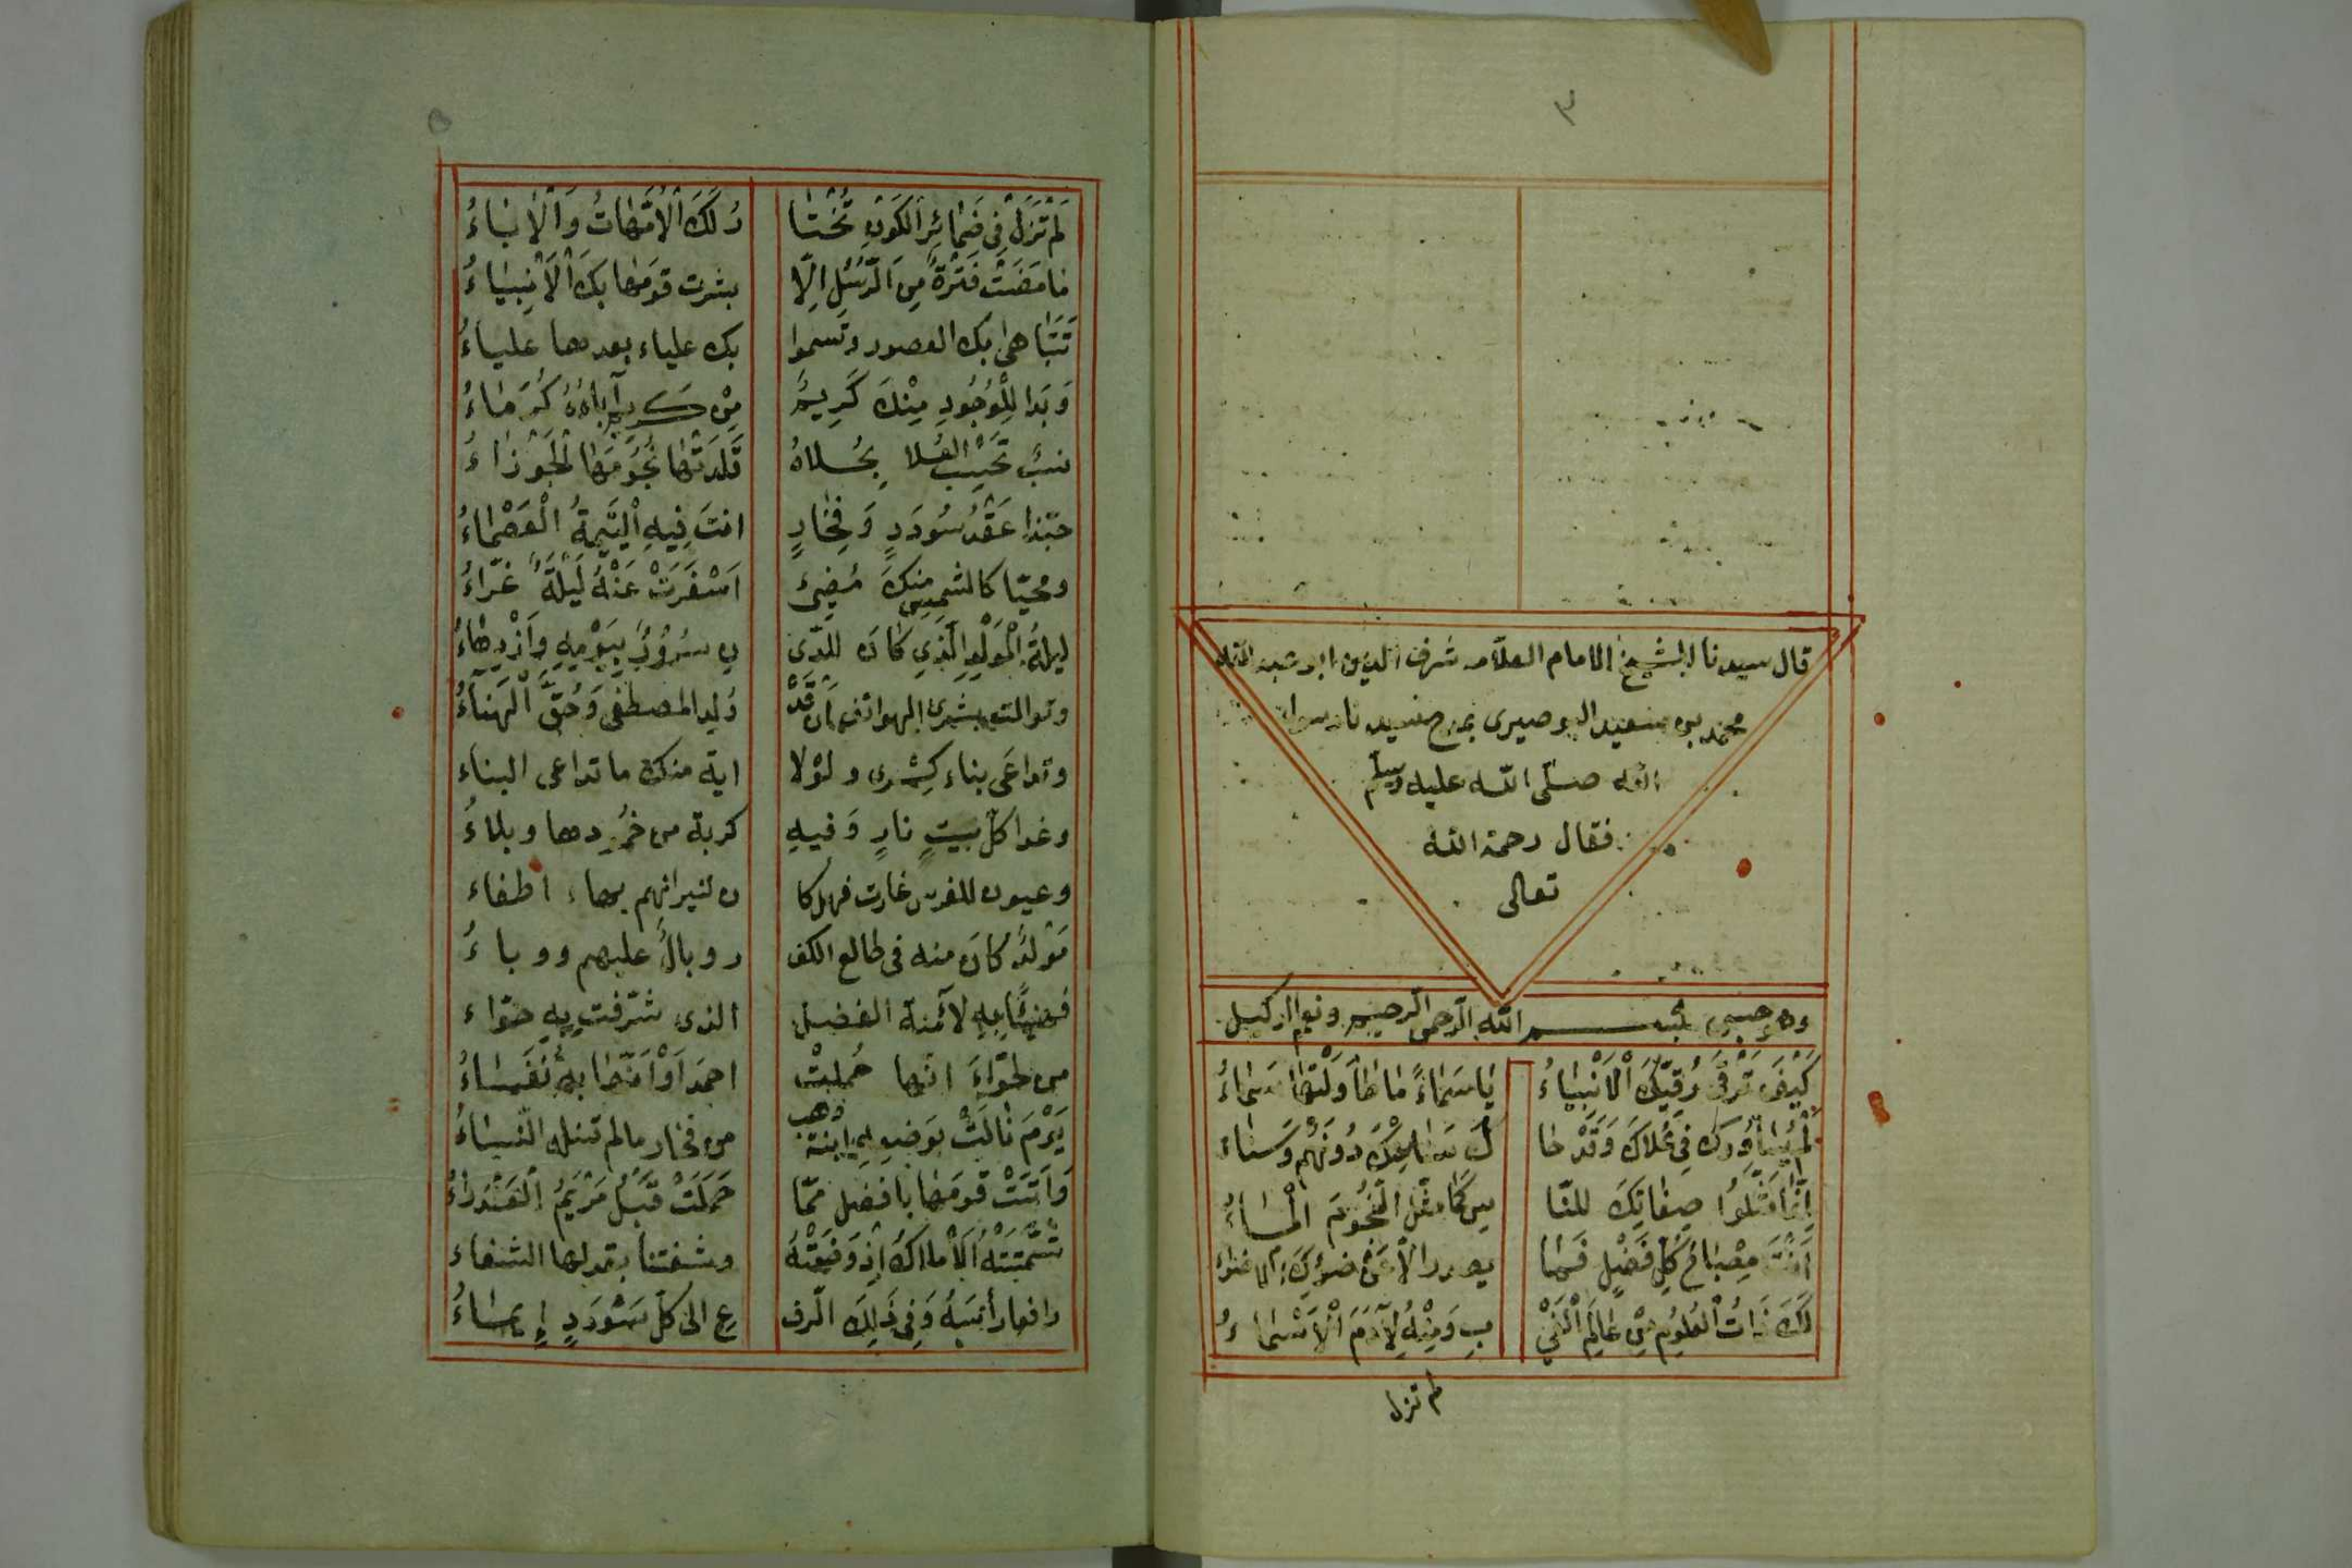 ٣
قال سيدنا الشيخ الامام العلامه شرف الدين ابو عبد الله
محمد بن سعيد البوصيرى يمدح سيدنا رسول
الله صلى الله عليه وسلم
فقال رحمة الله
تعالى
وهو حسبى بسم الله الرحمن الرحيم ونعم الوكيل
كَيْفَ تَرْقَى رُقِيَّكَ الْاَنْبِيَاءُ يَا سَمَاءً مَا طَاوَلَتْهَا سَمَاءُ
لَمْ يُسَاوُوكَ فِى عُلَاكَ وَقَدْ حَا لَ سَنًا مِنْكَ دُونَهُمْ وَسَنَاءُ
اِنَّمَا مَثَّلُوا صِفَاتِكَ للنّا سِ كَمَا مَثَّلَ النُّجُومَ الْمَاءُ
اَنْتَ مِصْبَاحُ كُلِّ فَضْلٍ فَمَا يصدر الا عَنْ ضوئِكَ الاضواء
لَكَ ذَاتُ الْعُلُومِ مِنْ عَالِمِ الْغَيْ بِ وَمِنْهُ لِآدَمَ الْاَسْمَاءُ
لم تزل
لَمْ تَزَلْ فِى ضَمَائِرِ الْكَوْنِ تُخْتَا رُ لَكَ الْاُمَّهَاتُ وَالْاٰبَاءُ
مَا مَضَتْ فَتْرَةٌ مِنَ الرُّسُلِ اِلَّا بشرت قَوْمَهَا بِكَ الْاَنْبِيَاءُ
تَتَبَاهى بك العصور وتَسموا بك علياء بعدها علياءُ
وَبَدا لِلْوُجُودِ مِنْكَ كَرِيمٌ مِنْ كريم آباؤهُ كُرَمَاءُ
نسبٌ تَحْسِبُ العُلا بِحُلاهُ قَلَّدَتْهَا نُجُومَهَا الْجَوْزَاءُ
حبّذا عَقْدُ سُودَدٍ وَفِخَارٍ انتَ فِيهِ الْيَتِيمَةُ الْعَصْمَاءُ
ومحيّا كالشمس مِنكَ مُضِئٌ اَسْفَرَتْ عَنْهُ لَيْلَةٌ غَرّاءُ
ليلةُ الْمَوْلِدِ الَّذِى كَانَ للدّى نِ سُرُورٌ بِيَوْمِهِ وَازْدِهَاءُ
وتوالت بشرى الهواتف اَن قَدْ وُلِدا لمصطفى وَحُقَّ الْهَنَاءُ
وتداعَى بناء كِسْرى ولوْلا اية منك ما تداعى البناء
وغدا كلّ بيتٍ نارٍ وَفيهِ كربة من خُمُودها وبلاءُ
وعيون للفرس غارت فهل كا ن لنيرانهم بها اطفاء
مَوْلدٌ كانَ منه فى طالع الكف ر وبالٌ عليهم ووباءُ
فهنيئًا بِهِ لآمنة الفضل الذى شرّفت بِهِ حوّاء
من لحَوّاءَ انها حُملتْ احمدَ اَوْ اَنّها بِهِ نُفَسَاءُ
يَوْمَ نَالَتْ بوَضعِهِ ابنة وهب من فخار مالم تنله النّسَاءُ
وَاَتَتْ قومَهَا بافضل ممّا حَمَلَتْ قَبْلُ مَرْيَمُ الْعَذْرَاءُ
شَمَّتَتْهُ الْاَمْلاكُ اِذْ وَضَعَتْهُ وشفتنا بقولها الشفاء
رافعا رأسَهُ وَفِى ذَلِكَ الرّف عِ الى كلّ سَوْدَدٍ إِيمَاءُ